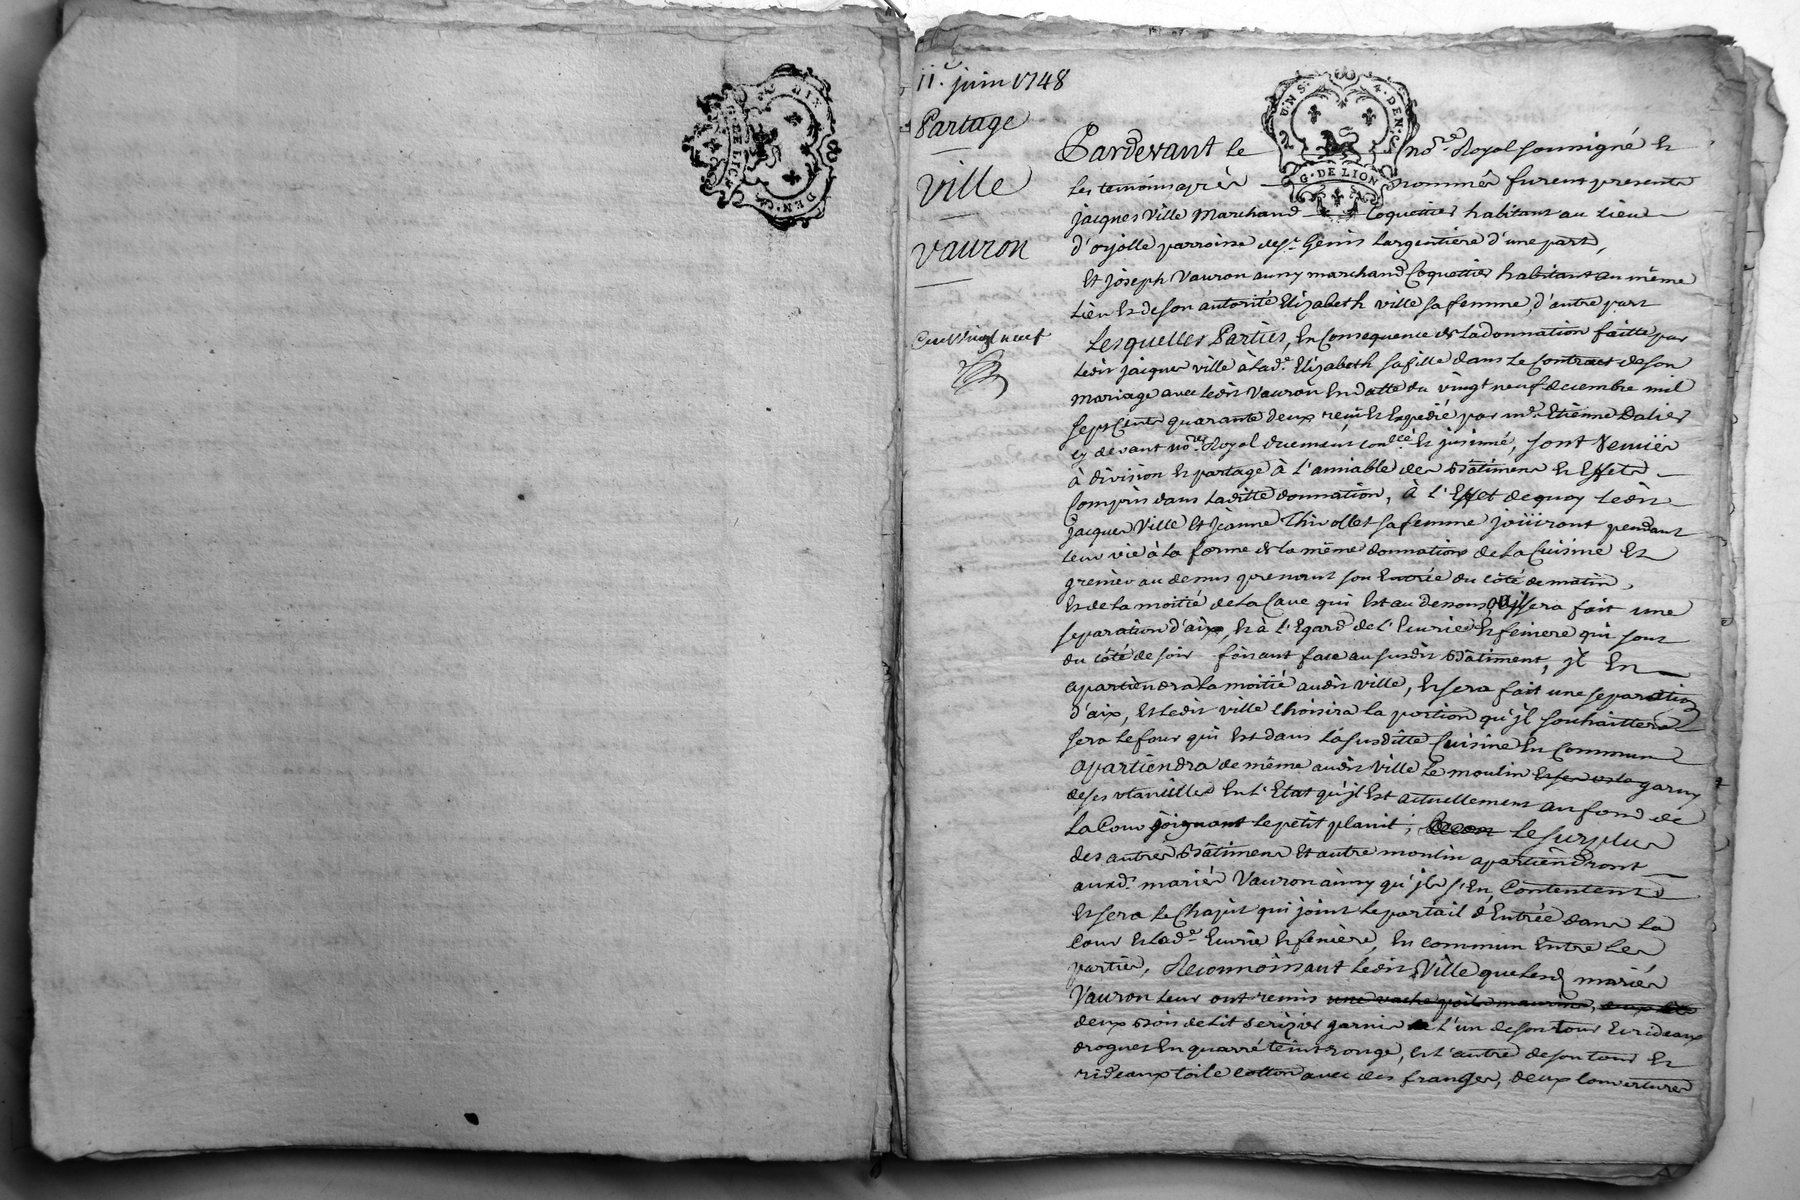 11.e juin 1748
Partage
Ville
Vauron
Cent Vingt neuf
U·N·S· 4·DEN·
G·DE LION
DIX
DEN
Pardevant le no.re Royal soussigné et
les temoins après nommés furent presents
jacques Ville Marchand Coquettier habitant au Lieu
d'orjolle parroisse de St. Genis Largentiere d'une part,
Et joseph Vauron aussy marchand Coquettier habitant au même
Lieu et de son autorité Elizabeth ville sa femme, d'autre part
Lesquelles Parties, En Consequence de La donnation faitte par
ledit jacques ville à lad.e Elizabeth sa fille dans le Contract de son
mariage avec ledit Vauron En datte du vingt neuf decembre mil
sept Cents quarante deux reçu et Expedié par m.e Etienne Dalier
cy devant no.re Royal duement con.llé et jnsinué, sont Venües
à division et partage à l'amiable des Bâtimens et Effets
Compris dans Laditte donnation, à l'Effet de quoy ledit
jacques Ville et jeanne Thivollet sa femme joüiront pendant
leur vie à la forme de la même donnation de La Cuisine et
grenier au dessus prenant son Entrée du côté de matin,
et de la moitié de La Cave qui est au dessous, où jl sera fait une
separation d'aix, et à l'Egard de l'Ecurie et feniere qui sont
du côté de soir faisant face au susdit Bâtiment, jl En
apartiendra la moitié audit ville, et sera fait une separation
d'aix, et ledit ville choisira la portion qu'jl souhaittera
sera le four qui est dans la susditte Cuisine En Commun
apartiendra de même audit Ville le moulin garny
de ses utencilles En l'Etat qu'jl Est actuellement au fond de
la Cour joignant le petit plassit; Le surplus
des autres Bâtimens et autre moulin apartiendront
auxd. mariés Vauron ainsy qu'jls s'En Contentent
et sera le Chapit qui joint le portail d'Entrée dans la
Cour et lad.e Ecurie et feniere, En commun Entre les
parties, Reconnoissant ledit Ville que lesd mariés
Vauron leur ont remis une vache poils
deux Bois de lit Serizier garnis l'un de son tour et rideaux
drogues En quarré teint rouge, et l'autre de son tour et
rideaux toile cotton avec des franges, deux Couvertures